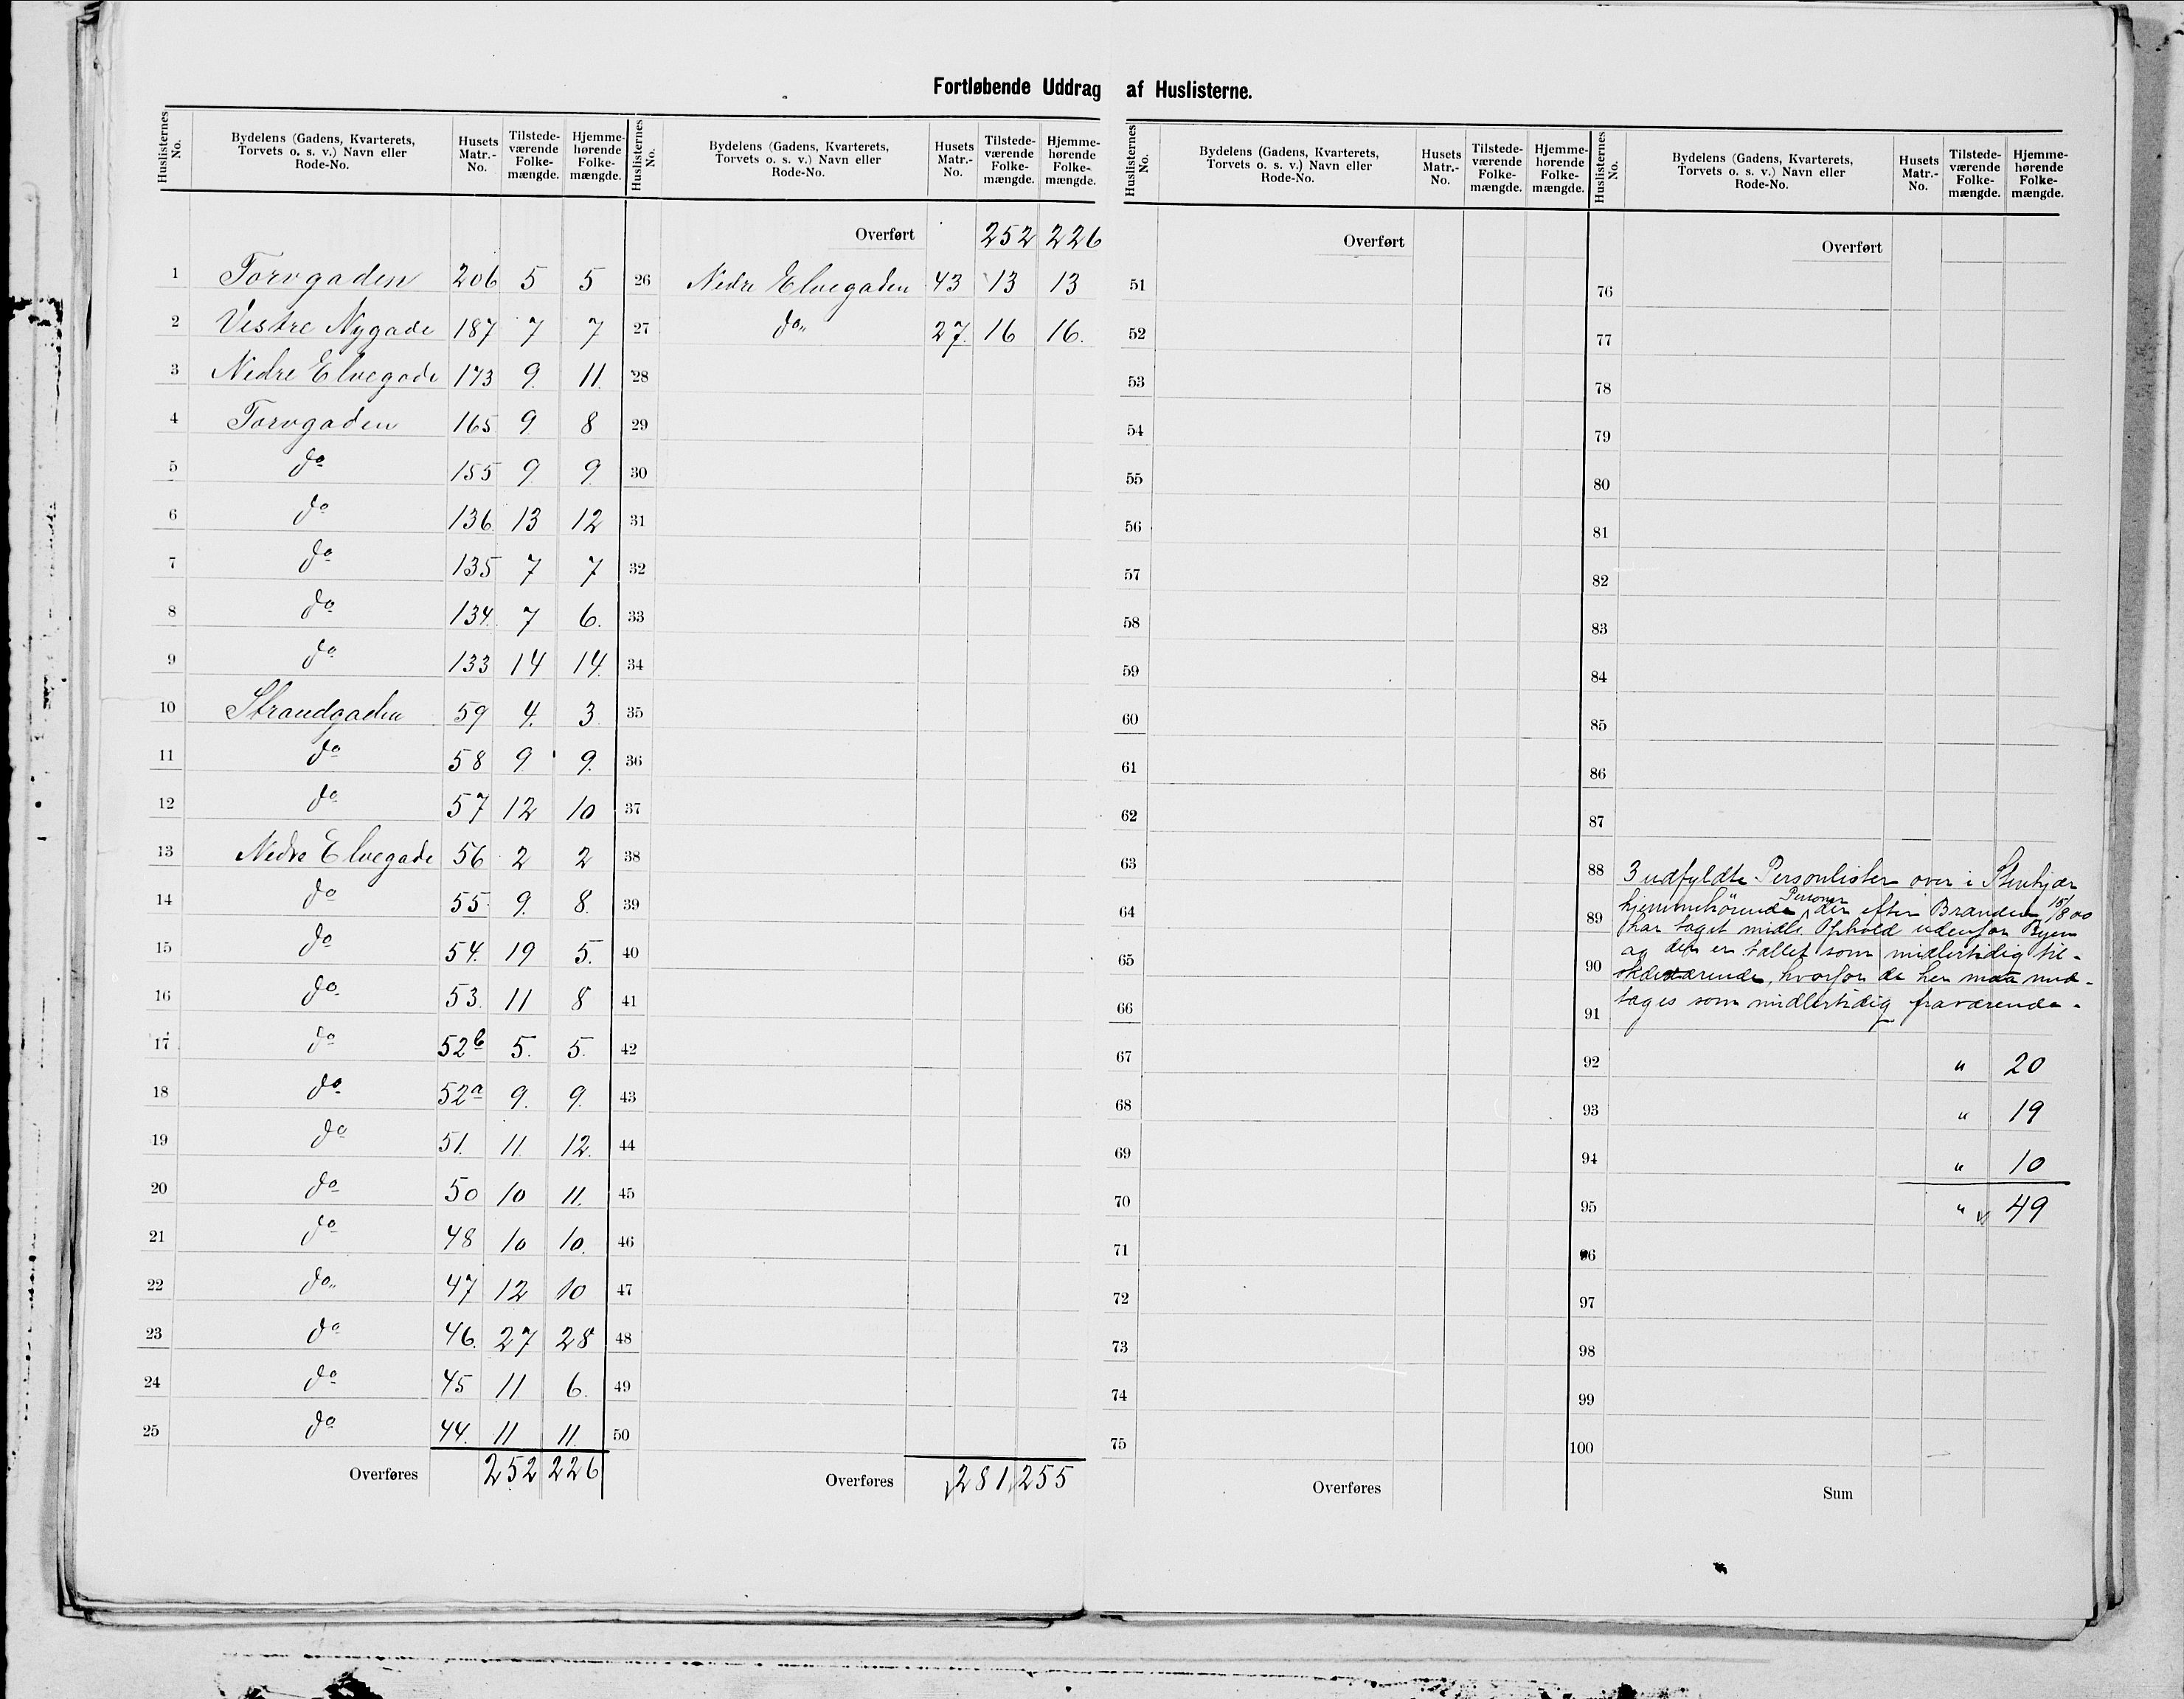 Fortløbende Uddrag af Huslisterne.
Huslisternes No. Bydelens (Gadens, Kvarterets, Torvets o. s. v.) Navn eller Rode-No. Husets Matr.-No. Tilstede-værende Folke-mængde. Hjemme-hørende Folke-mængde.
1 Torvgaden 206 5 5
2 Vestre Nygade 187 7 7
3 Nedre Elvegade 173 9. 11.
4 Torvgaden 165 9. 8
5 do 155 9. 9.
6 do 136 13 12
7 do 135 7 7
8 do 134. 7 6.
9 do 133 14 14.
10 Strandgaden 59 4. 3.
11 do 58 9. 9.
12 do 57 12 10
13 Nedre Elvegade 56 2 2
14 do 55 9. 8.
15 do 54. 19 5.
16 do 53. 11 8
17 do 52b 5. 5.
18 do 52a 9. 9.
19 do 51. 11. 12.
20 do 50 10 11.
21 do 48 10 10.
22 do„ 47 12 10
23 do 46. 27 28
24 do 45 11 6.
25 do 44. 11 11.
Overføres 252 226
Huslisternes No. Bydelens (Gadens, Kvarterets, Torvets o. s. v.) Navn eller Rode-No. Husets Matr.-No. Tilstede-værende Folke-mængde. Hjemme-hørende Folke-mængde.
Overført 252 226
26 Nedre Elvegaden 43 13 13
27 do„ 27. 16 16.
28
29
30
31
32
33
34
35
36
37
38
39
40
41
42
43
44
45
46
47
48
49
50
Overføres 281 255
Huslisternes No. Bydelens (Gadens, Kvarterets, Torvets o. s. v.) Navn eller Rode-No. Husets Matr.-No. Tilstede-værende Folke-mængde. Hjemme-hørende Folke-mængde.
Overført
51
52
53
54
55
56
57
58
59
60
61
62
63
64
65
66
67
68
69
70
71
72
73
74
75
Overføres
Huslisternes No. Bydelens (Gadens, Kvarterets, Torvets o. s. v.) Navn eller Rode-No. Husets Matr.-No. Tilstede-værende Folke-mængde. Hjemme-hørende Folke-mængde.
Overført
76
77
78
79
80
81
82
83
84
85
86
87
88 3 udfyldte Personlister over i Stenkjær
89 hjemmehörende Personer der efter Branden 15/8 00
har taget midl. Ophold udenfor Byen
og der er tallet som midlertidig til-
90 stedeværende, hvorfor de her maa med-
91 tages som midlertidig fraværende.
92 " 20
93 " 19
94 " 10
95 " 49
96
97
98
99
100
Sum